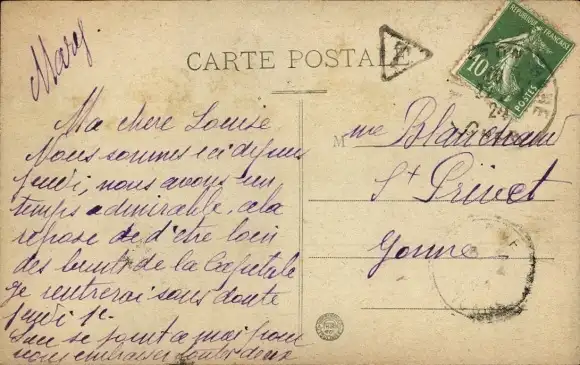 Mary
CARTE POSTALE
T
REPUBLIQUE FRANCAISE
10
POSTES
Ma chere Louise
Nous sommes ici depuis
jeudi, nous avons un
temps admirable, cela
repose de d'être loin
des bruits de la Capitale
je rentrerai sans doute
jeudi
se joint a moi pour
vous embrasser toutes deux
Mme Blanchard
St Privet
Yonne